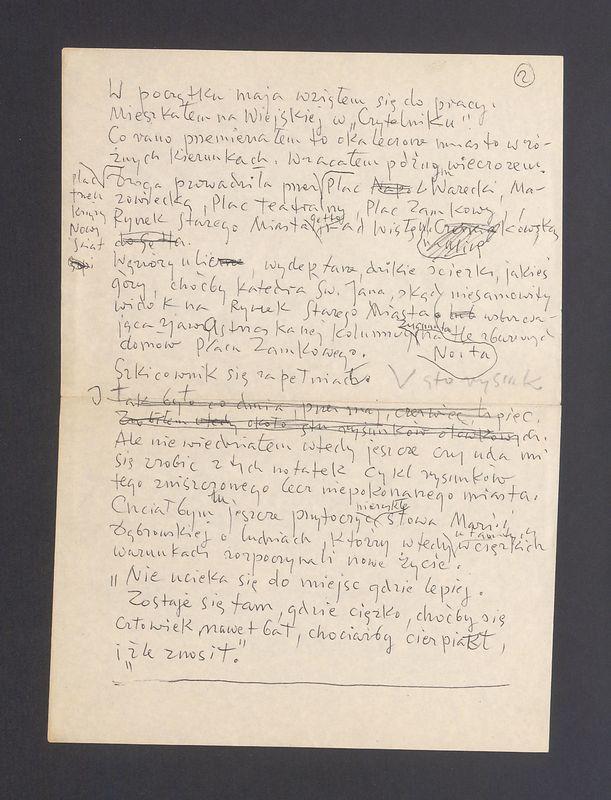 2
W początku maja wziąłem się do pracy.
Mieszkałem na Wiejskiej w „Czytelniku".
Co rano przemierzałem to okaleczone miasto w ró-
żnych kierunkach. Wracałem późnym wieczorem.
Droga prowadziła przez Plac Nap Warecki, Ma-
plac
trzech
krzyży
Nowy
Świat
zowiecką, Plac Teatralny, Plac Zamkowy,
Rynek Starego Miasta, getto, nad Wisłę,
kowską
do getta.
Wąwozy ulic, wydeptane, dzikie ścieżki, jakieś
góry, choćby katedra Św. Jana, skąd niesamowity
widok na Rynek Starego Miasta lub wzbudza-
jąca zjawa strzaskanej kolumny Zygmunta na tle zburzonych
domów Placu Zamkowego.
Nosta
Szkicownik się zapełniał.
V sto rysunk
Tak było co dnia, przez maj, czerwiec, lipiec.
Zrobiłem wtedy około stu rysunków ołówkowych.
Ale nie wiedziałem wtedy jeszcze czy uda mi
się zrobić z tych notatek cykl rysunków
tego zniszczonego lecz niepokonanego miasta.
Chciałbym tu jeszcze przytoczyć niezwykłe słowa Marii
Dąbrowskiej o ludziach, którzy wtedy w tamtych ciężkich
warunkach rozpoczynali nowe życie.
„Nie ucieka się do miejsc gdzie lepiej.
Zostaje się tam, gdzie ciężko, choćby się
człowiek nawet bał, chociażby cierpiał,
i źle znosił."